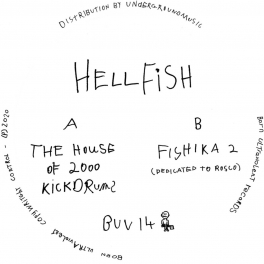 DISTRIBUTION BY UNDERGROUNDMUSIC
HELLFiSH
A
THE HOUSE
OF 2000
KiCKDRums
B
FiSHiKA 2
(DEDICATED TO ROSCO)
BUV 14
BORN ULTRAVIOLENT RECORDS
BORN ULTRAVIOLENT COPYWRIGHT CONTROL - ℗2020